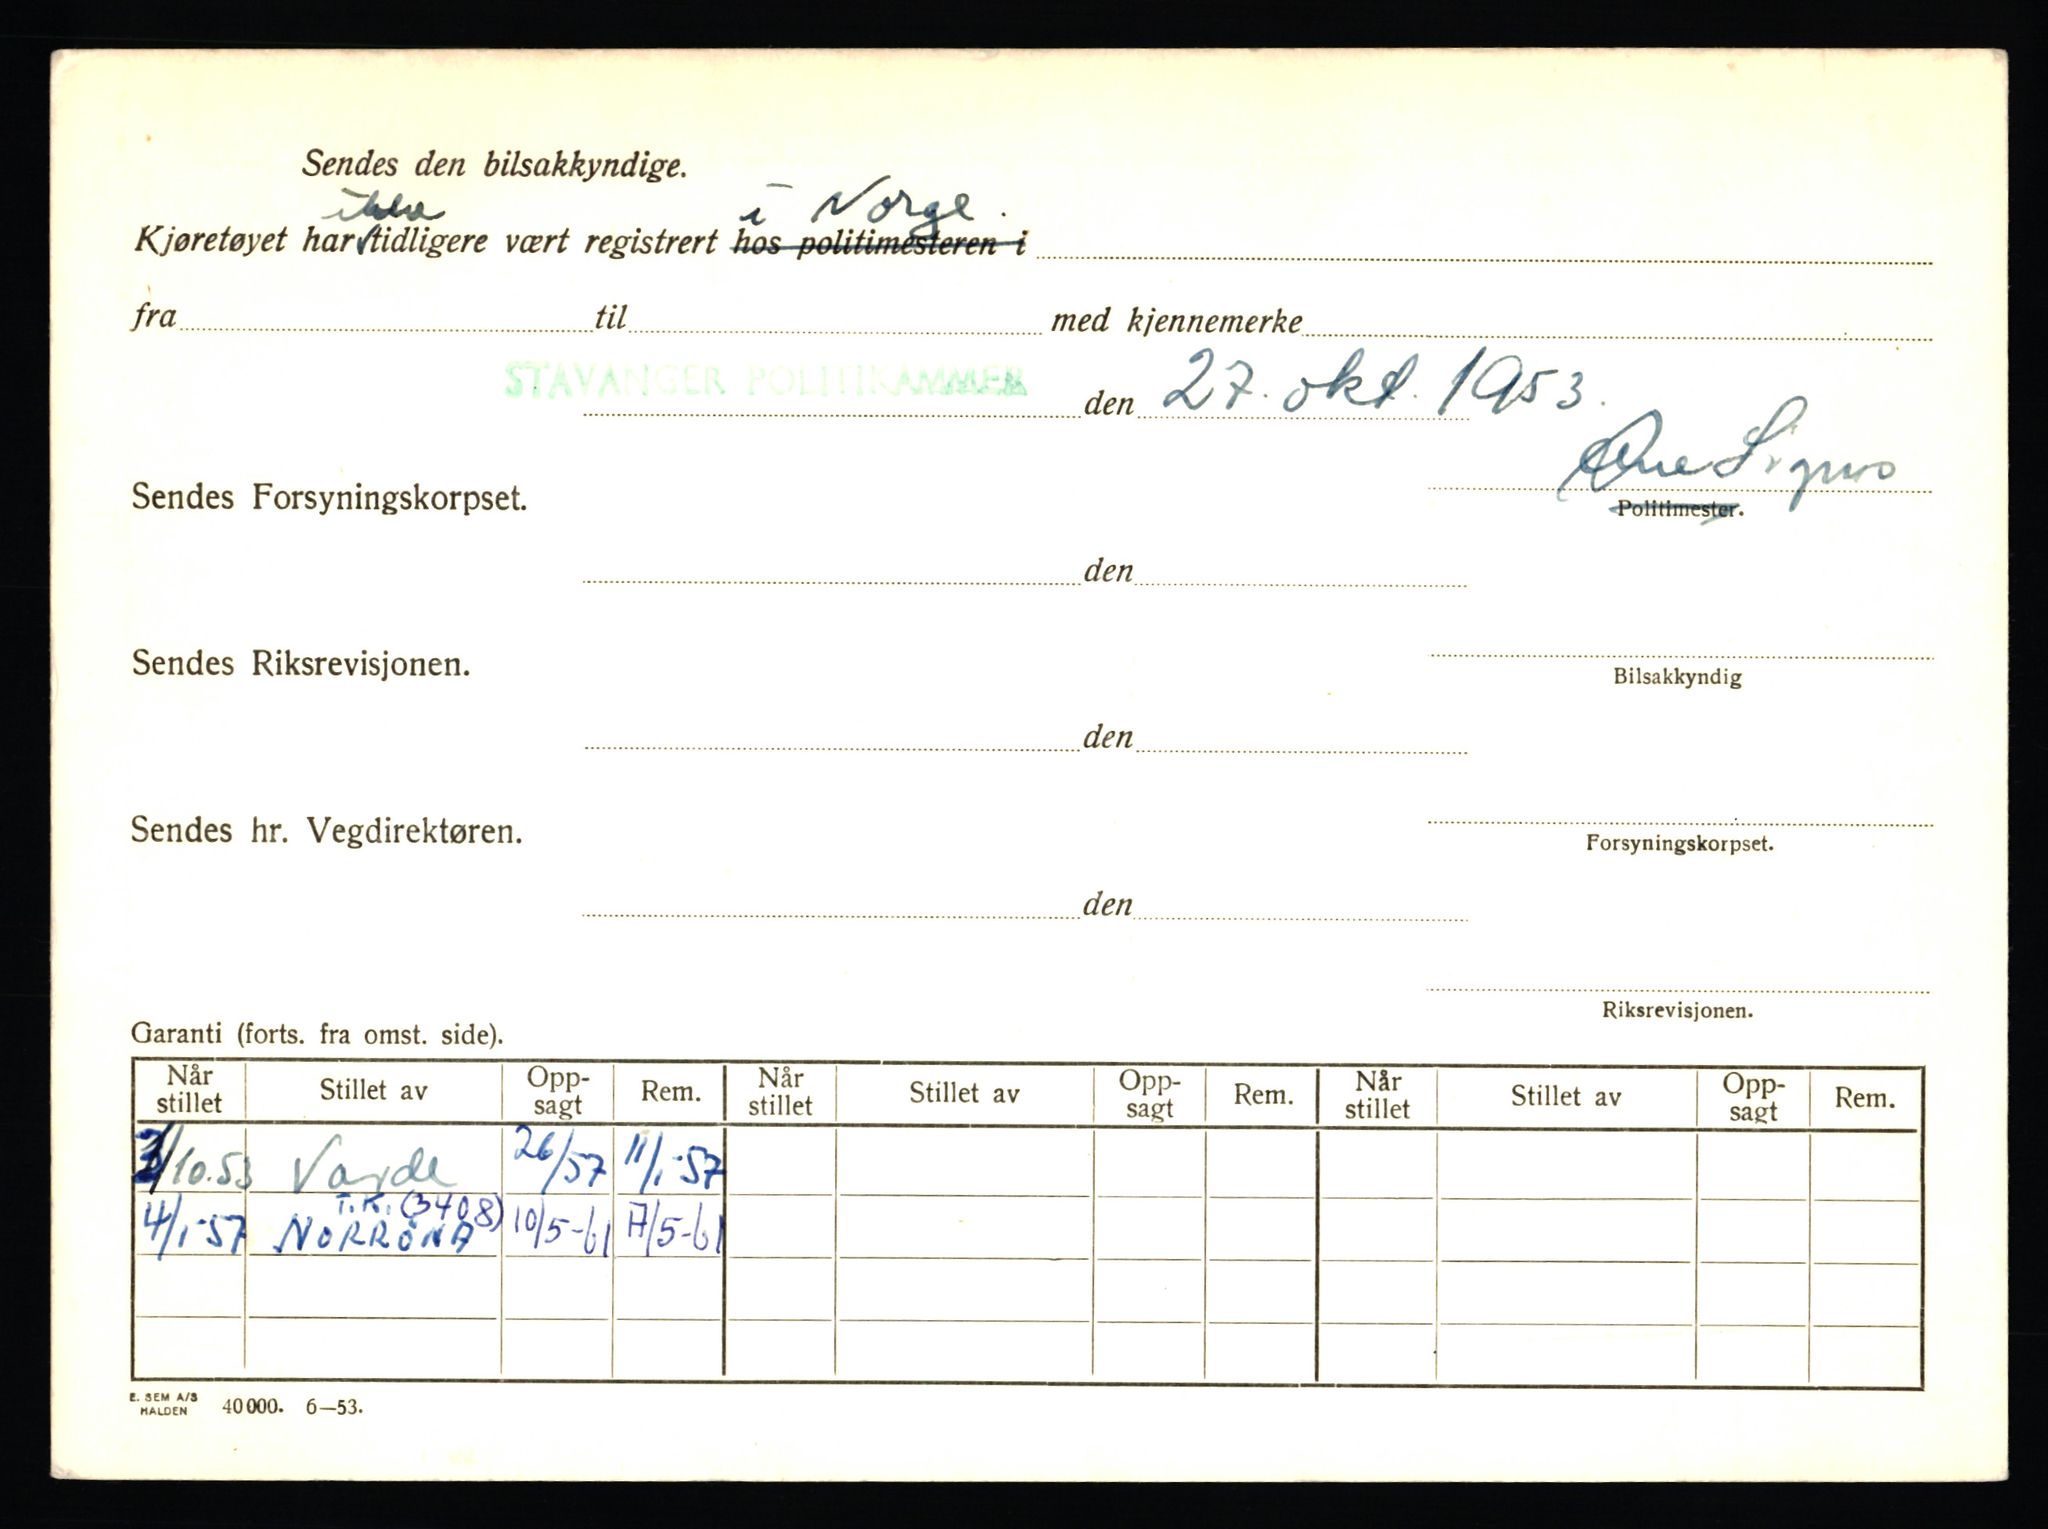 Sendes den bilsakkyndige.
ikke i Norge.
Kjøretøyet har tidligere vært registrert hos politimesteren i
fra til med kjennemerke
STAVANGER POLITIKAMMER den 27. okt. 1953.
Sendes Forsyningskorpset.
Politimester.
den
Sendes Riksrevisjonen.
Bilsakkyndig
den
Sendes hr. Vegdirektøren.
Forsyningskorpset.
den
Riksrevisjonen.
Garanti (forts. fra omst. side).
Når stillet Stillet av Opp-sagt Rem. Når stillet Stillet av Opp-sagt Rem. Når stillet Stillet av Opp-sagt Rem.
/10.53 Varde 26/57 11/1-57
T.K. (3408)
4/1-57 NORRÖNA 10/5-61 17/5-61
E. SEM A/S
HALDEN 40 000. 6—53.